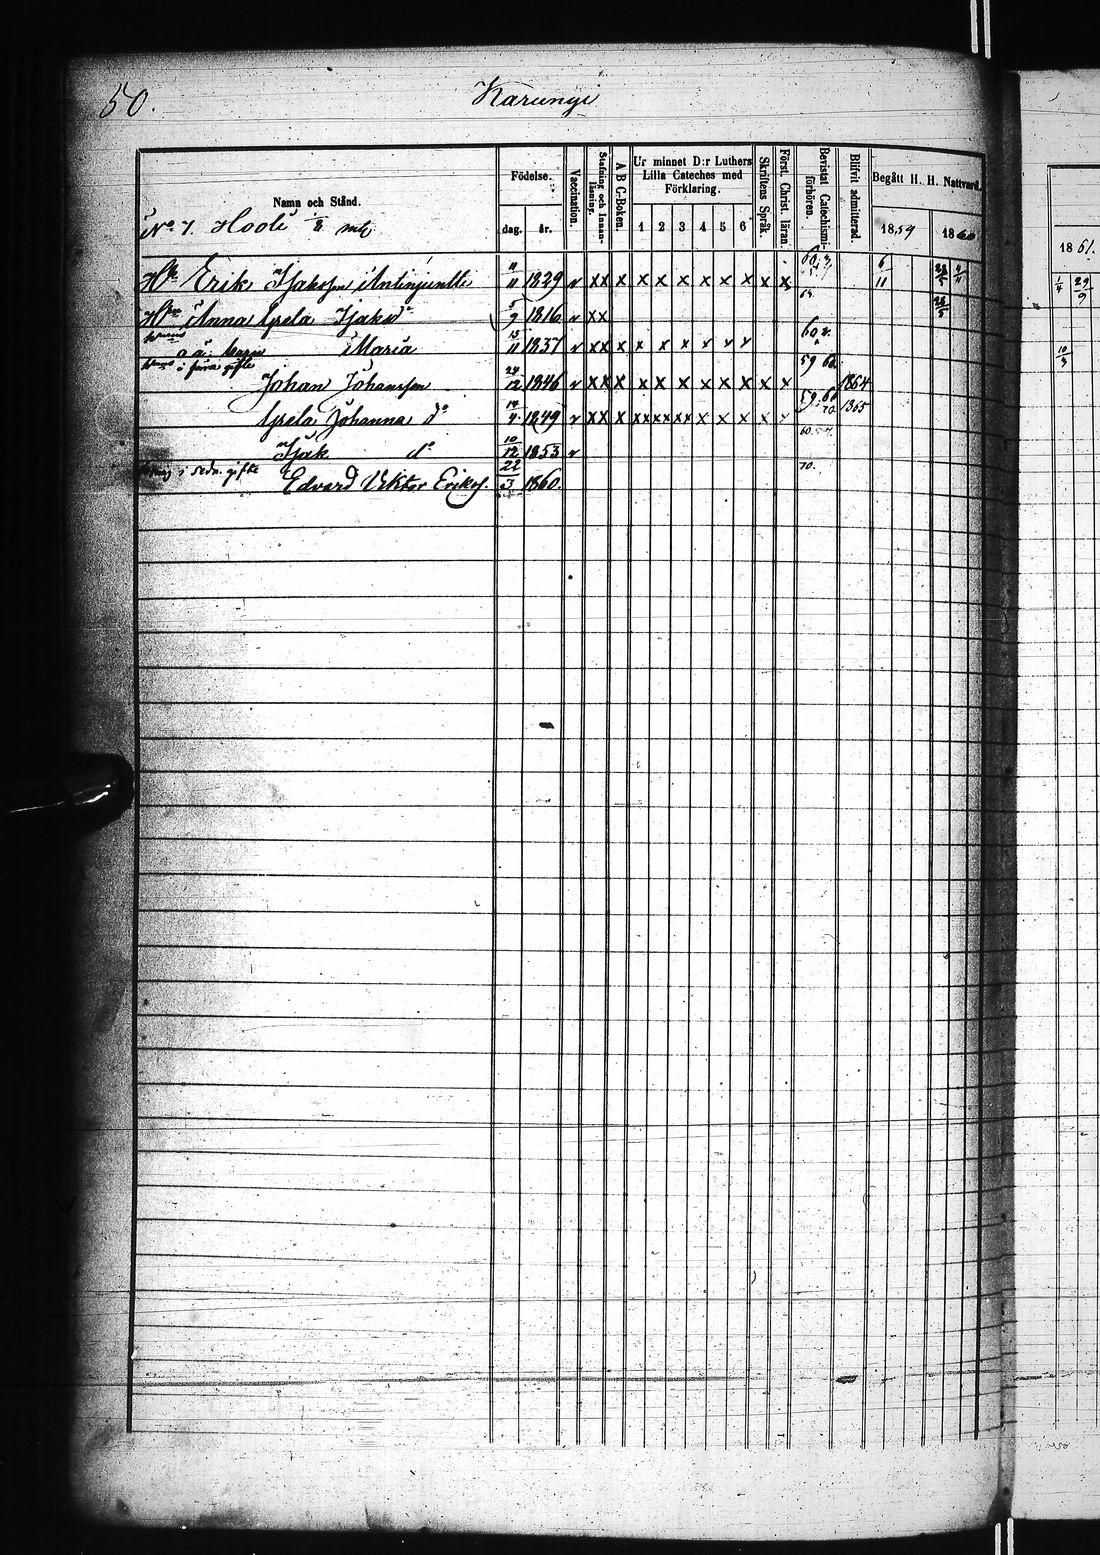 50.
Karungi
Namn och Stånd.
Födelse.
dag.
år.
Vaccination.
Stafning och Innanläsning.
A B C-Boken.
Ur minnet D:r Luthers
Lilla Cateches med
Förklaring.
1 2 3 4 5 6
Skriftens Språk.
Först. Christ. läran.
Bevistat Catechismiförhören.
Blifvit admitterad.
Begått H. H. Nattvard.
1859
1860
1861.
No 7. Hooli
Erik Isaksson 11/11 1829 v xx x x x x x x x x x 6/11
Anna Greta Isaksd 5/9 1816 v xx
Maria 15/11 1837 v xx x x x x x v v 10/3
Johan Johansson 24/12 1846 v xx x x x x x x x x x 1864
Greta Johanna do 14/4 1849 v xx x xx xx xx x x x x 1865
Isak do 10/12 1853 v
gifte
Edvard Viktor Erikss. 22/3 1860.